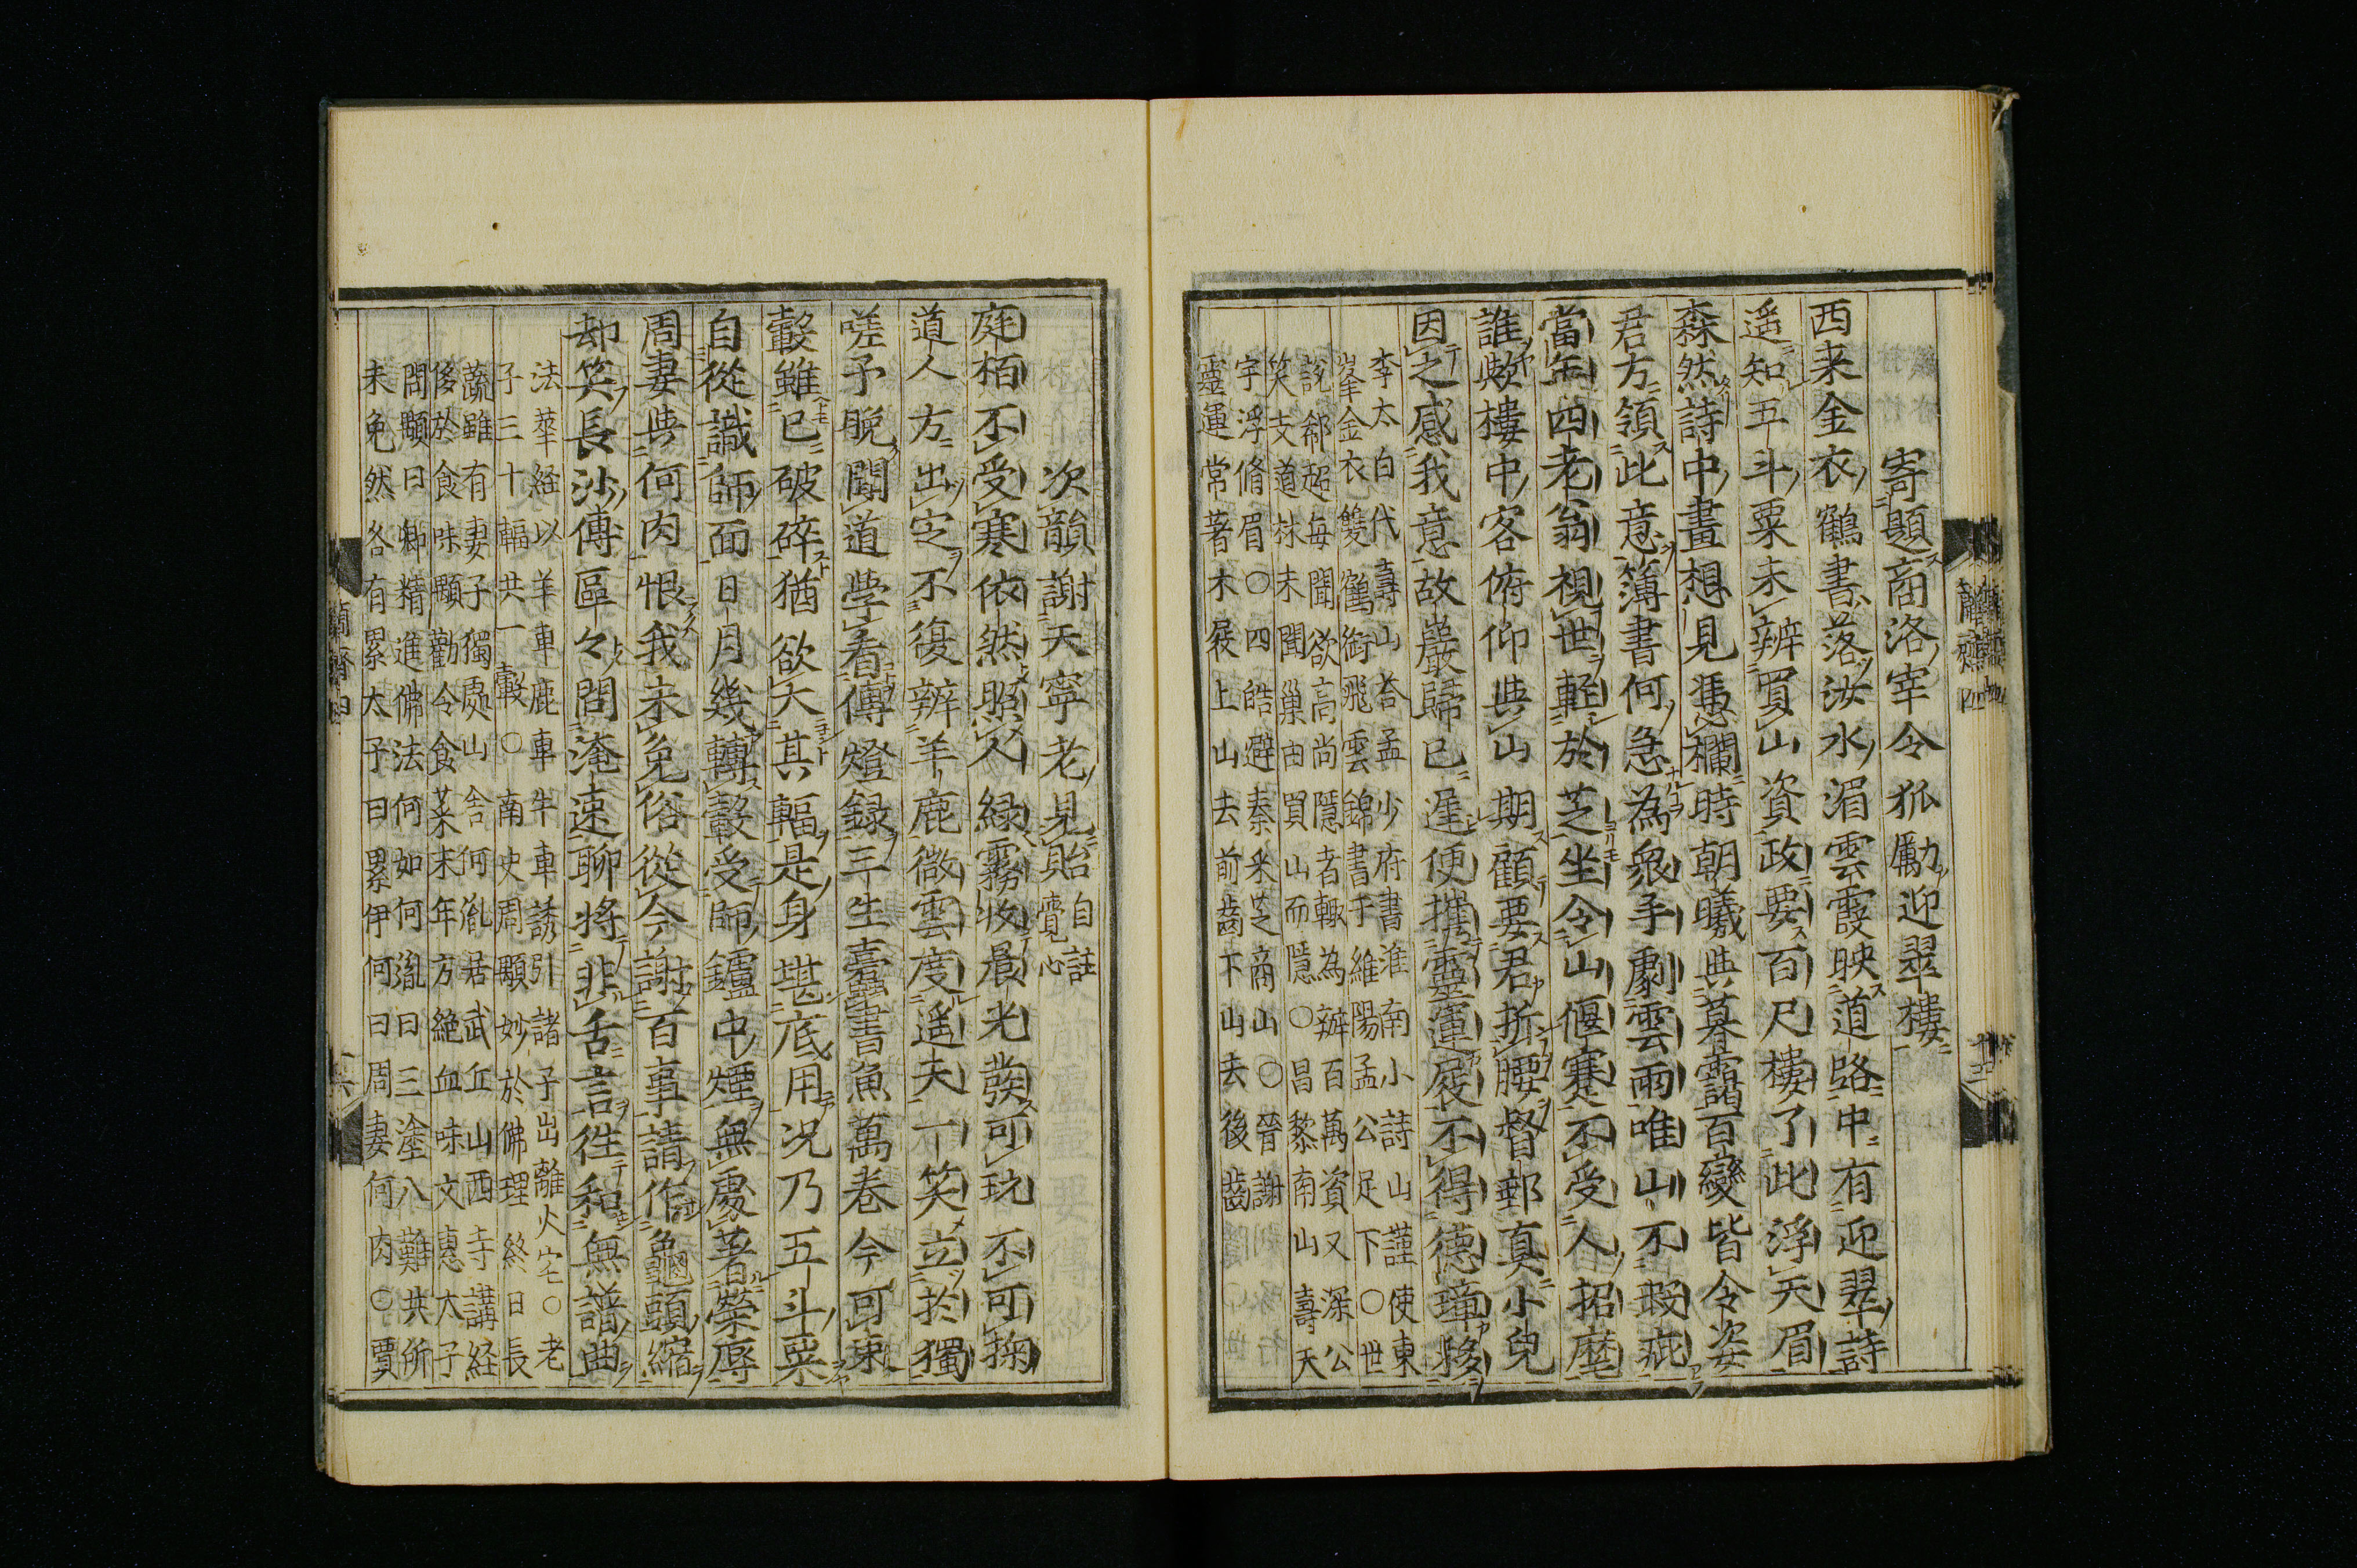 寄題商洛宰令狐勵迎翠樓
西来金衣鶴書落汝水湄雲霞映道路中有迎翠詩
遥知五斗粟未辨買山資政要百尺樓了此浮天眉
森然詩中畫想見憑欄時朝曦與暮靄百變皆令姿
君方領此意簿書何急為衆手劇雲雨唯山不瑕疵
當年四老翁視世輕於芝坐令山偃蹇不受人招麾
誰歟樓中客俯仰與山期顧要君折腰督郵真小兒
因之感我意故巖歸已遲便携靈運屐不得德璋移
李太白代壽山荅孟少府書淮南小詩山謹使東
峯金衣雙鶴銜飛雲錦書于維陽孟公足下〇世
說郗超毎聞欲高尚隱者輙為辦百萬資又深公
笑支道林未聞巢由買山而隱〇昌黎南山壽天
宇浮脩眉〇四皓避秦采芝商山〇晉謝
靈運常著木屐上山去前齒下山去後齒
簡齋四
次韻謝天寧老見貽 自註覺心
庭栢不受寒依然照人緑霧收晨光發可玩不可掬
道人方出定不復辨羊鹿微雲度遥天一笑立於獨
嗟予脱聞道學看傳燈録三生蠹書魚萬卷今可束
轂雖已破碎猶欲大其輻是身堪底用况乃五斗粟
自從識師面日月幾轉轂受師鑪中煙無處著榮辱
周妻與何肉恨我未免俗從今謝百事請作龜頭縮
却笑長沙傅區々問淹速聊將非舌言徃和無譜曲
法華経以羊車鹿車牛車誘引諸子出離火宅〇老
子三十輻共一轂〇南史周顒妙於佛理終日長
蔬雖有妻子獨處山舎何胤居武丘山西寺講経
侈於食味顒勸令食菜末年方絶血味文惠太子
問顒曰卿精進佛法何如何胤曰三塗八難共所
未免然各有累太子曰累伊何曰周妻何肉〇賈
簡齋四